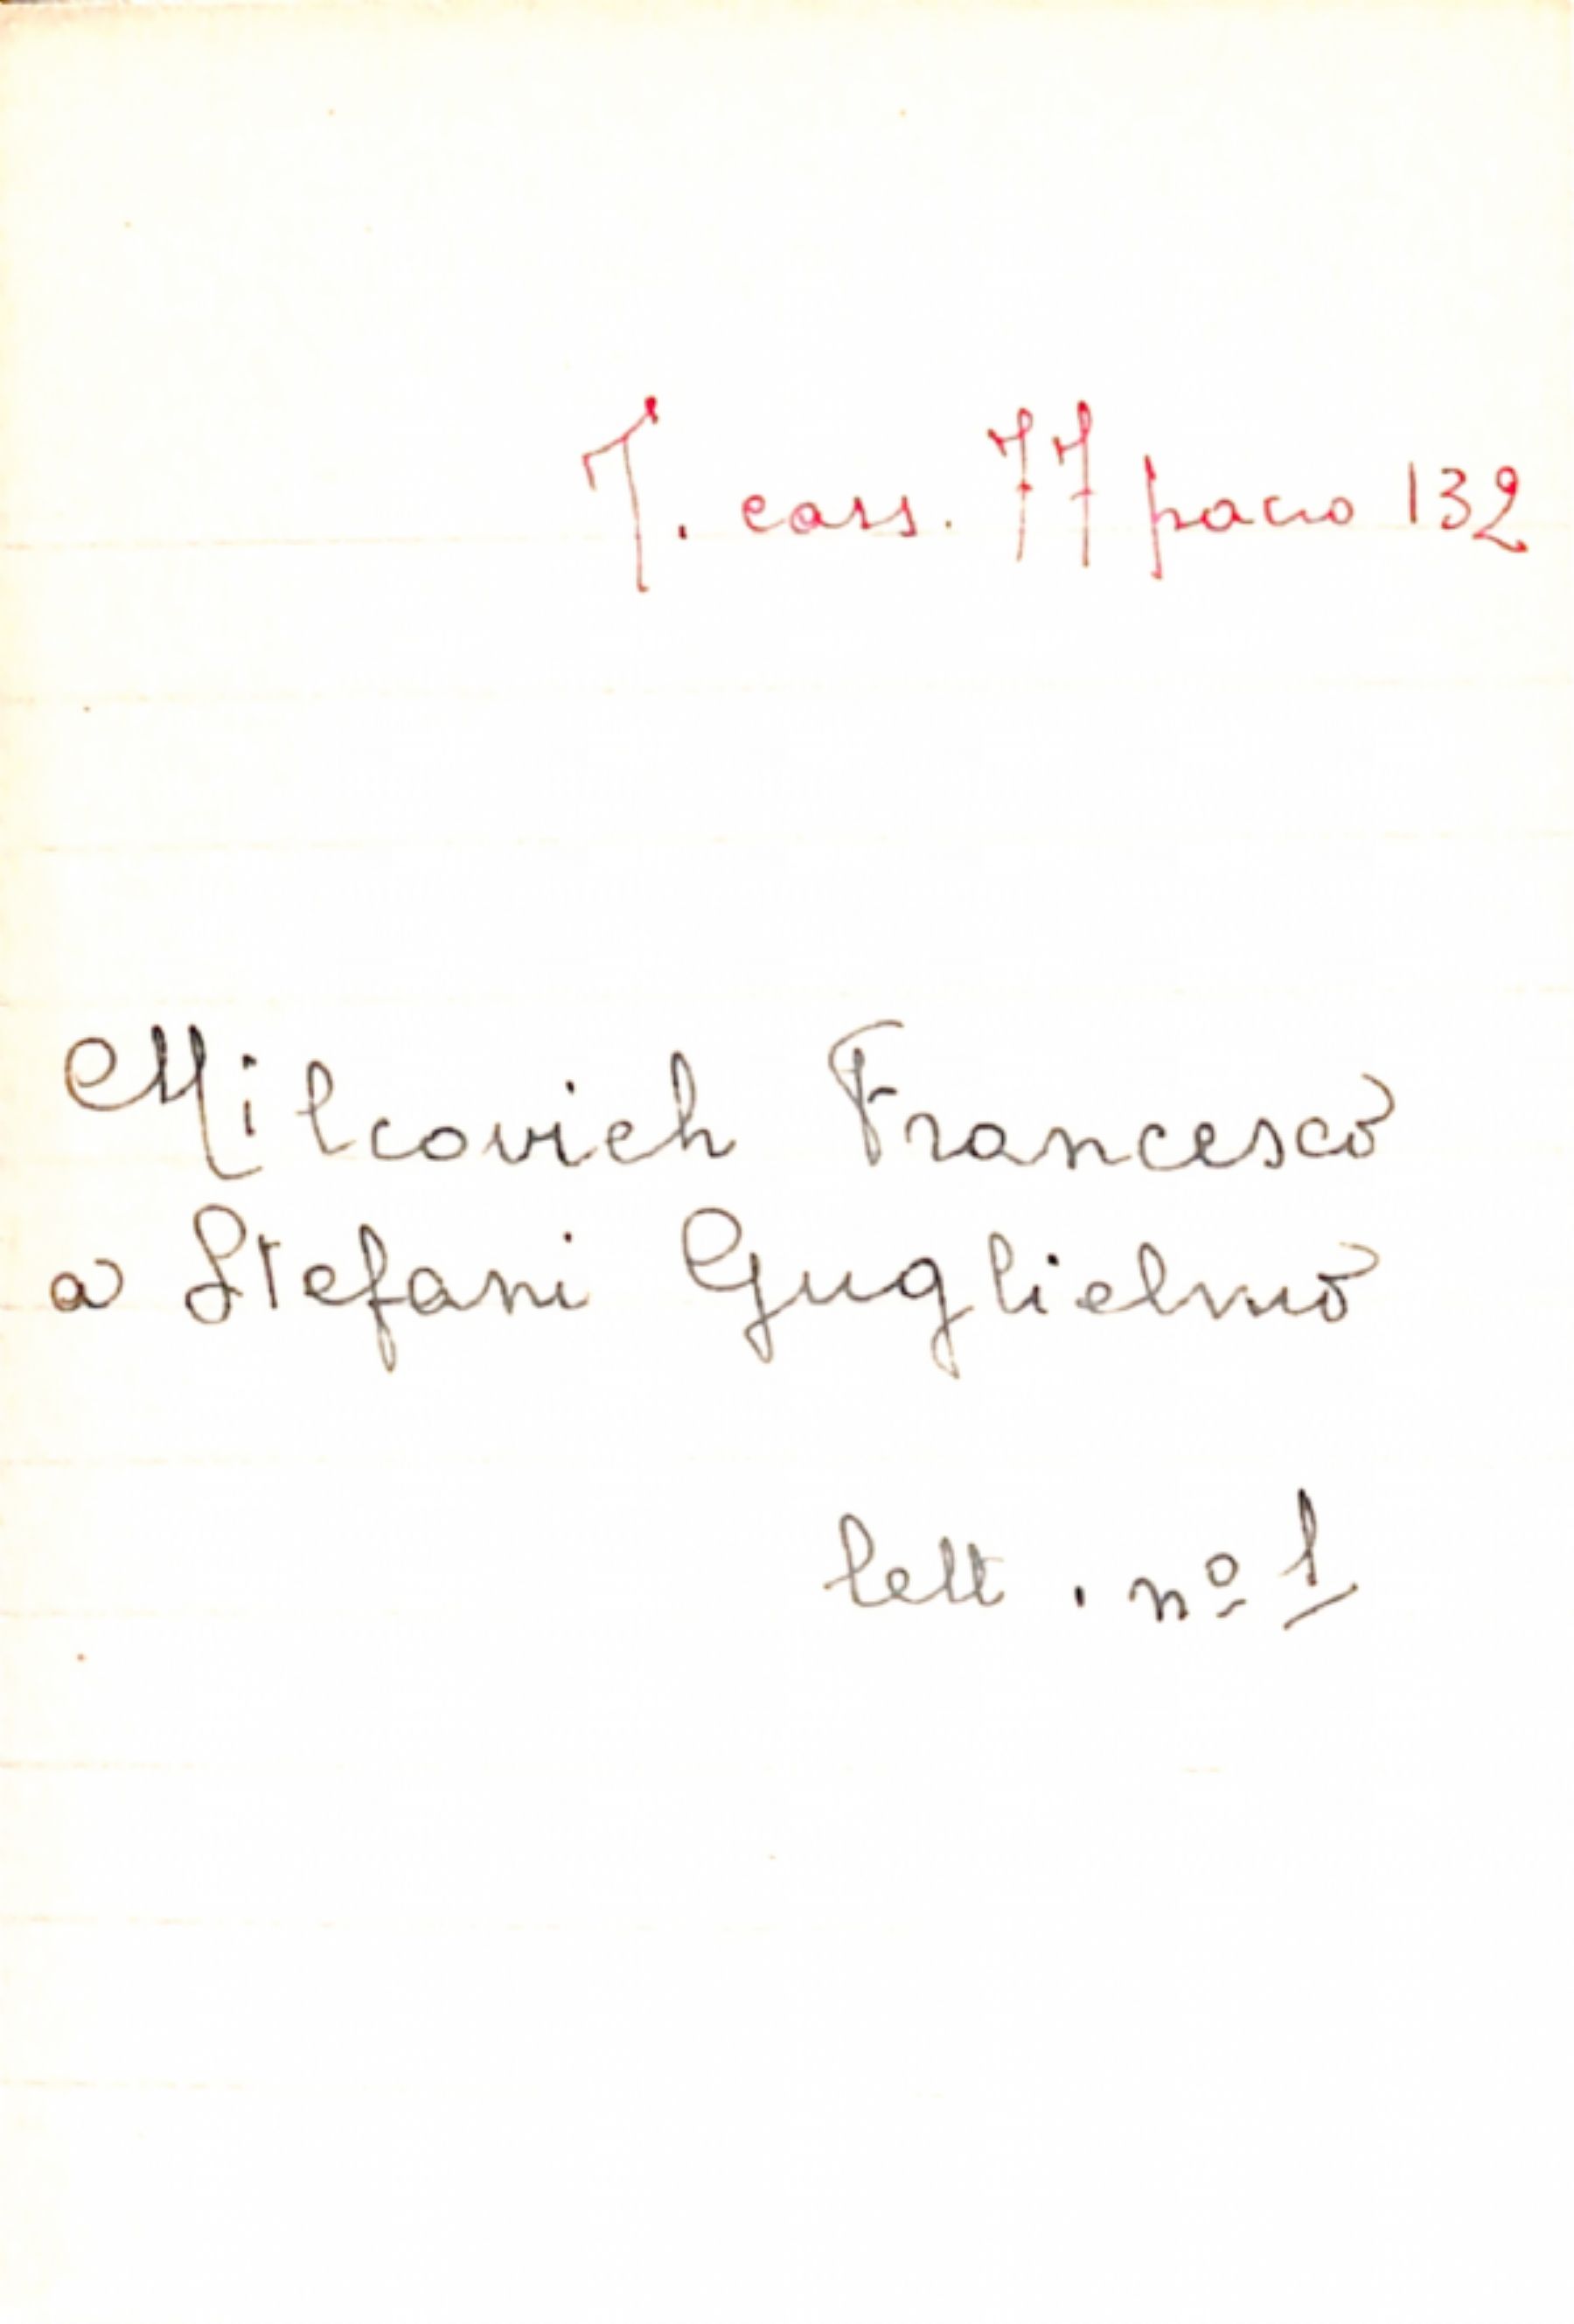 T. cass. 77 pacco 132
Milcovich Francesco
a Stefani Guglielmo
lett. nº 1